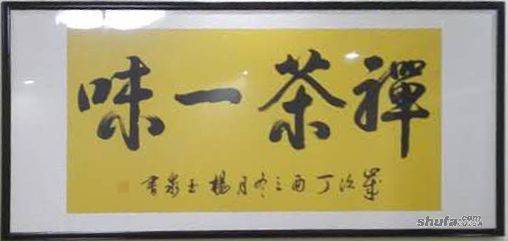 禪茶一味
歲次丁酉之冬月楊玉泉書
shufa.com